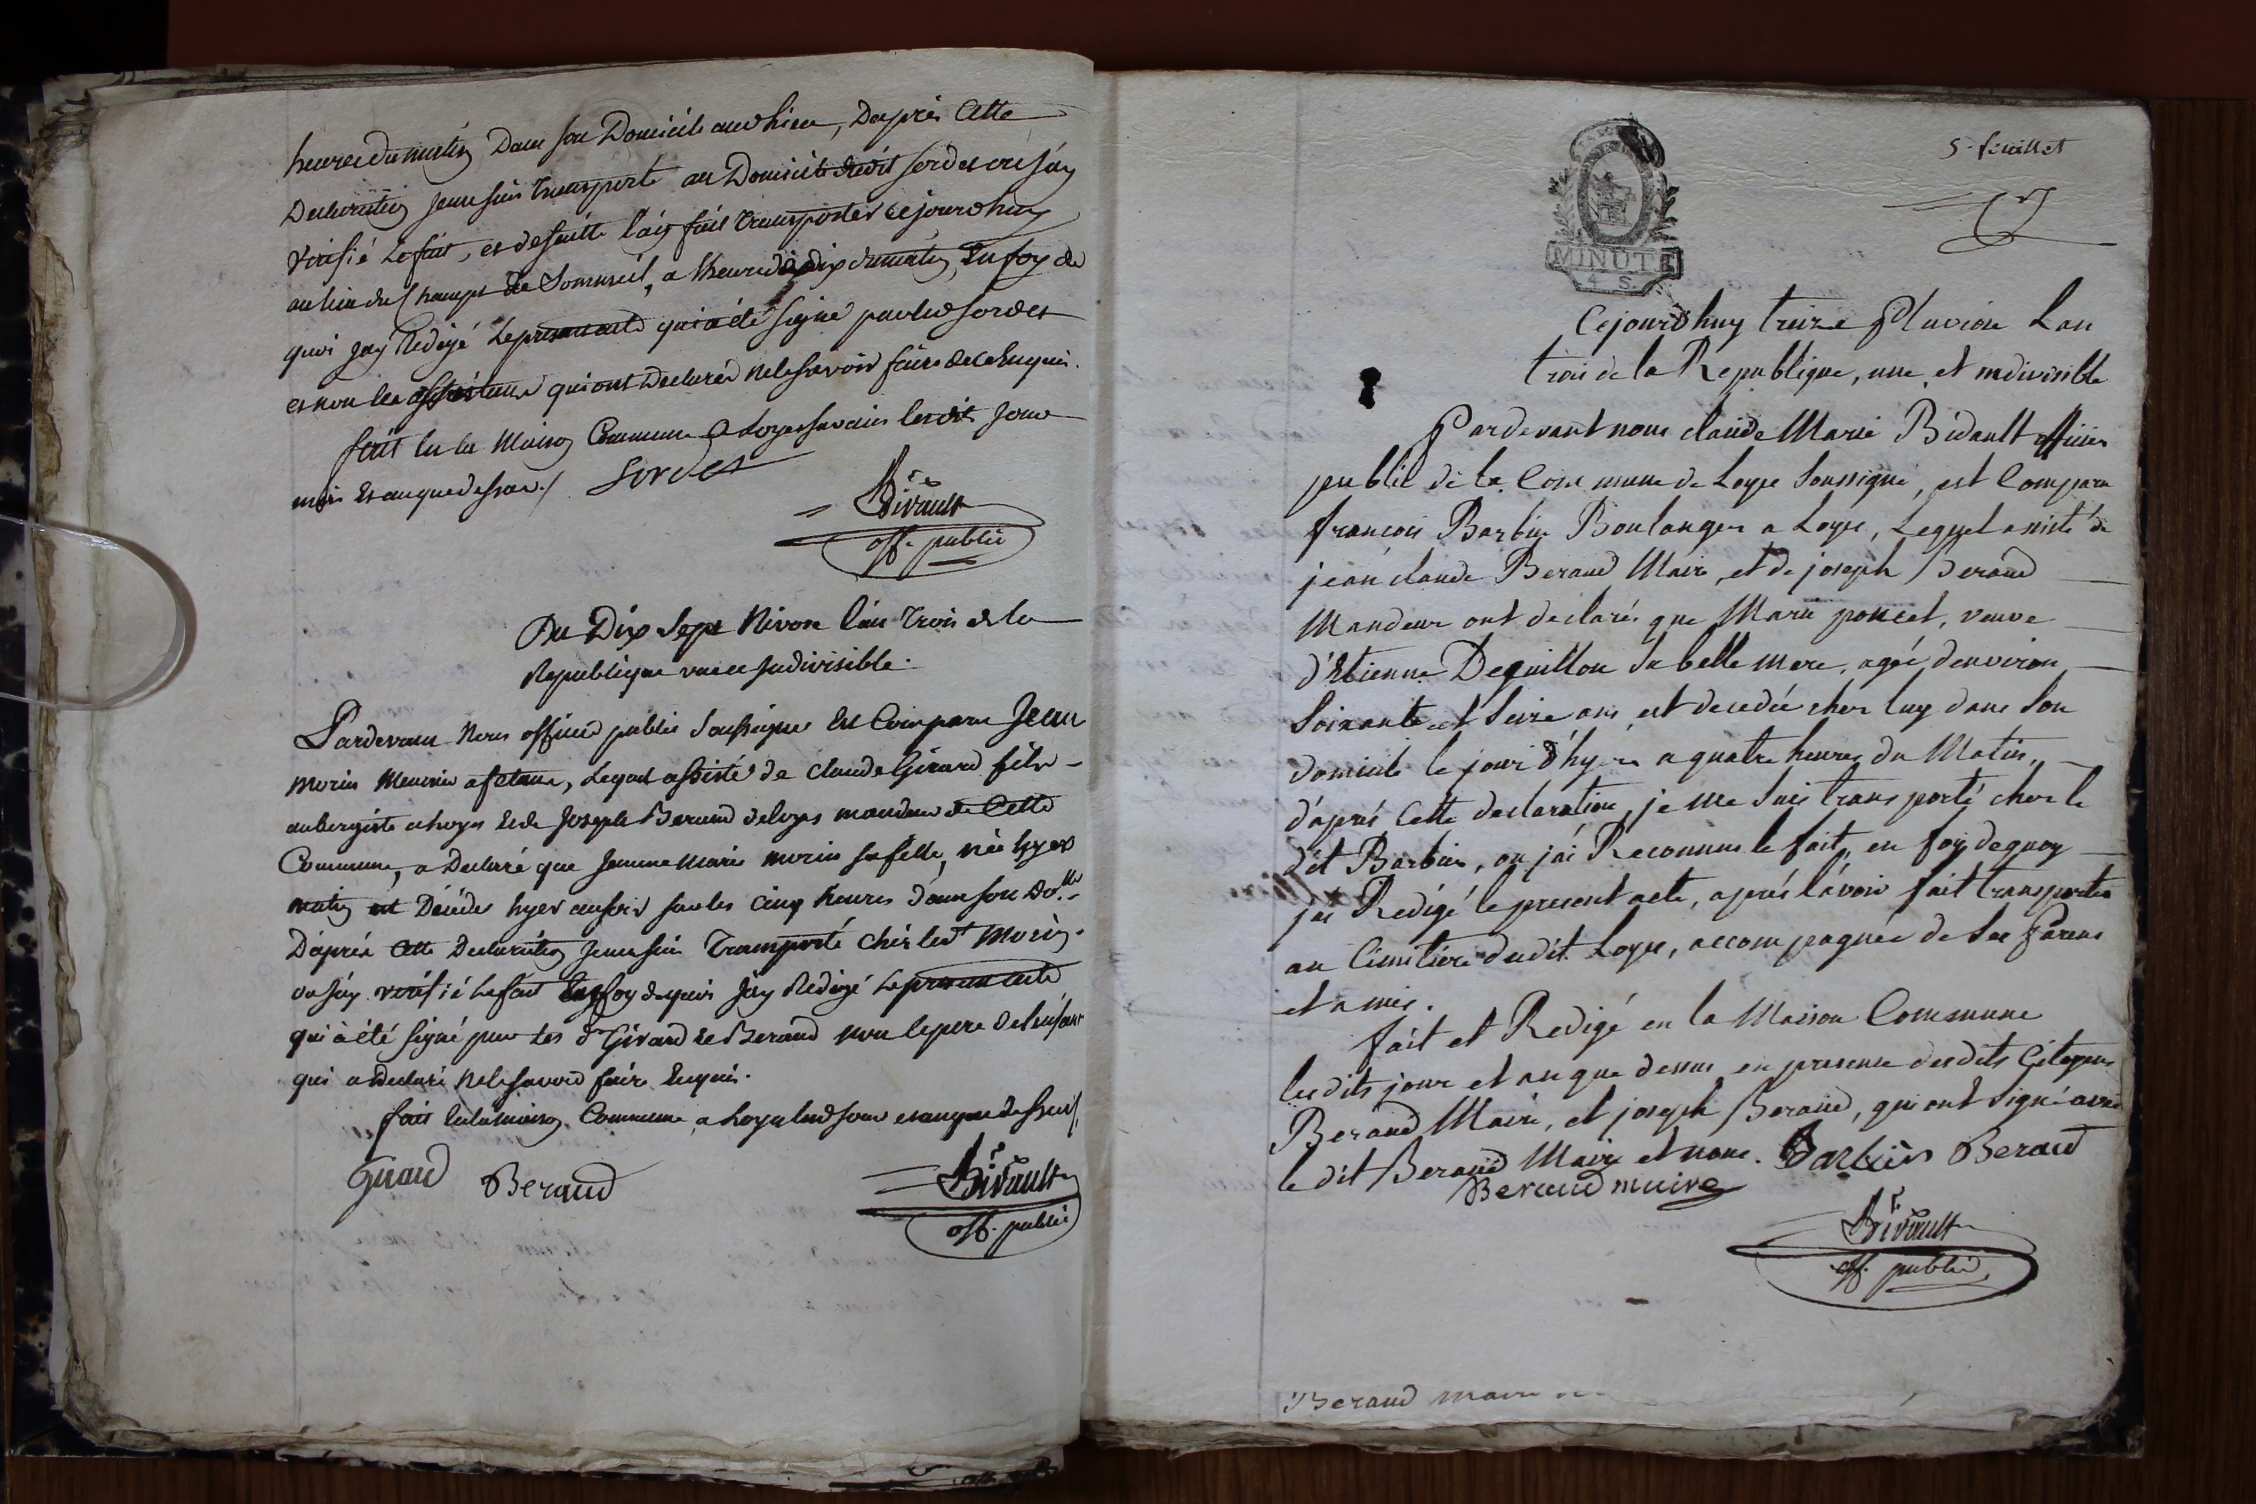 heures du matin Dans son Domicile aud hieu, Daprès Cette
Declaration je me suis Transporté au Domicile dudit sordes ou jáy
vérifié Le fait, et de suitte l'aÿ fait Transporter ce jourdhuy
au lieu du Champs de Sommeil, a lheure de dix du matin, En foy de
quoi Jay Redigé Le present acte qui a été signé par led sordes
et non les assistans qui ont Declaré ne le savoir faire de ce Enquis.
fait En la Maison Commune a Loyes les dits Jour
mois Et an que dessus./. Sordes
Bivault
off. public
Du Dix Sept Nivose l'an Trois de la
Republique une et Indivisible.
Pardevant Nous officier public Soussigné Est Comparu Jean
morin Meunier a , Lequel assisté de Claude Girard fils
aubergiste a Loyes Et de Joseph Beraud de Loyes mandeur de Cette
Commune, a Declaré que Jeanne Marie morin sa fille, née hyer
matin est Décédée hyer au soir sur les Cinq heures Dans son Do.lle
D'après Cette Declaration Je me suis Transporté Chés led.t Morin
ou jáy vérifié Le fait En foy de quoi Jáy Redigé Le present acte
qui à été signé par Les d. Girard et Beraud non le pere de l'enfant
qui a Declaré Ne le savoir faire Enquis.
fait En la maison Commune a Loyes lesd Jour et an que dessus/.
Girard Beraud
Bivault
off. public
5e feuillet
MINUTE
4 S.
Cejourdhuy treize Pluviose L an
trois de la Republique, une et indivisible
Pardevant nous claude Marie Bidault officier
public de la Commune de Loyse Soussigné, est Comparu
françois Barbier Boulanger a Loyse, Lequel assisté de
jean claude Beraud Maire, et de joseph Beraud
Mandeur ont declarés que Marie poncet, veuve
d'Etienne Deguillon Sa belle mere, agée d'environ
Soixante et Seize ans est decedée chez luy dans Son
domicile le jour d'hyer a quatre heures du Matin,
d'après Cette declaration, je me Suis transporté chez le
dit Barbier, ou jái Reconnu le fait, en foy de quoy
jai Redigé le present acte, après l'avoir fait transporter
au Cimitiere dudit Loyse, accompagnée de Ses Parens
et amis.
fait et Redigé en la Maison Commune
les dits jour et an que dessus en presence desdits Citoyens
Beraud Maire, et joseph Beraud, qui ont Signé avec
le dit Beraud Maire et nous. Barbier Beraud
Beraud maire
Bivault
off. public
Beraud maire